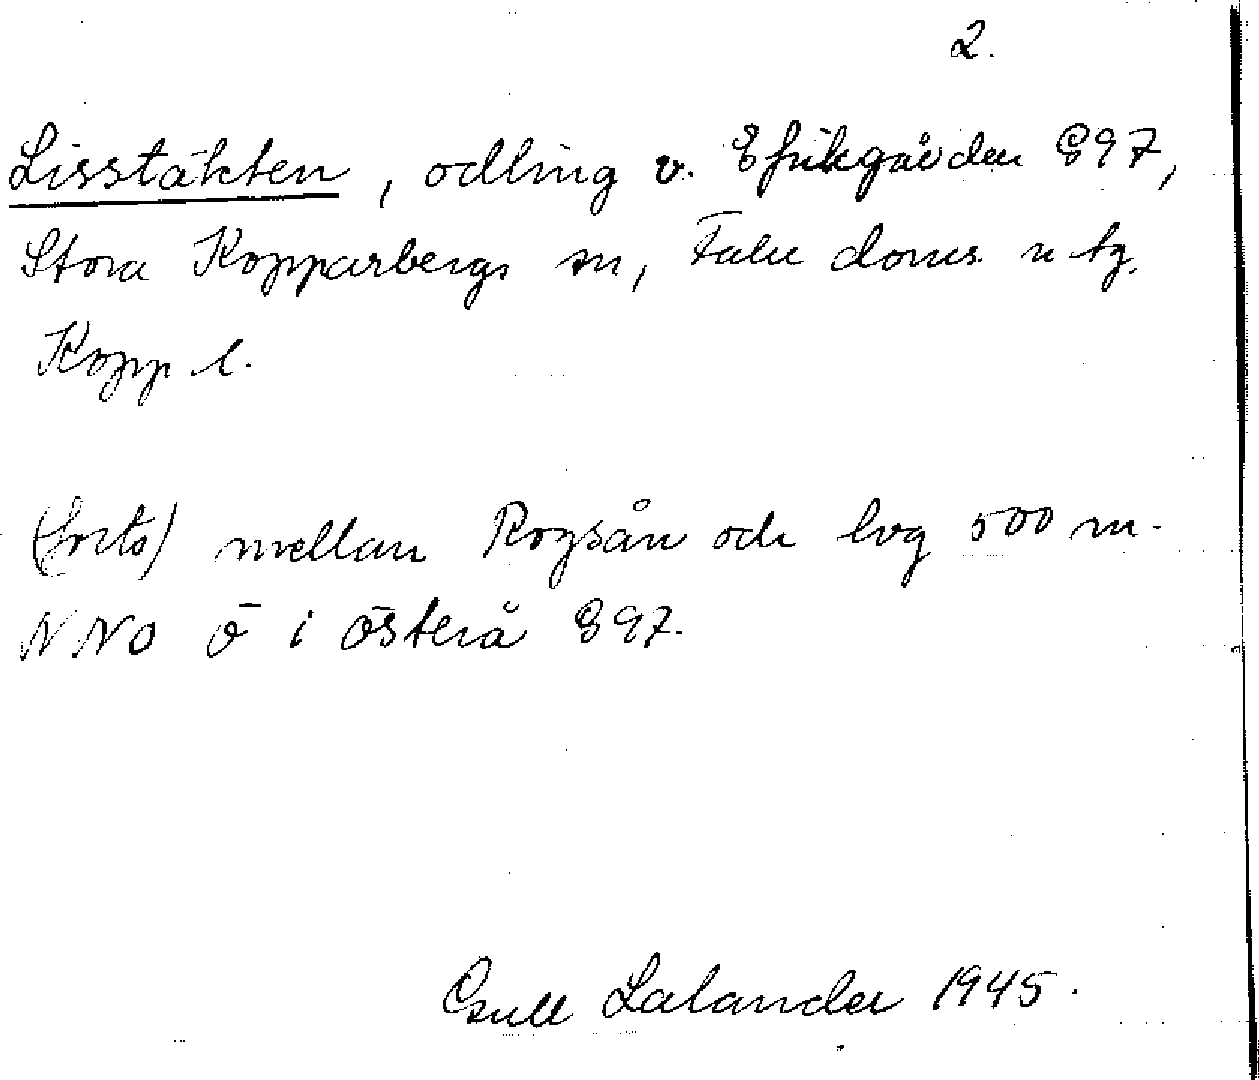 2.
Lisstäkten, odling v. Efrikgården 897,
Stora Kopparbergs sn, Falu doms. n tg.
Kopp l.
(forts) mellan Rogsån och lvg 500 m.
NNO ö i Österå 897.
Lalander 1945.